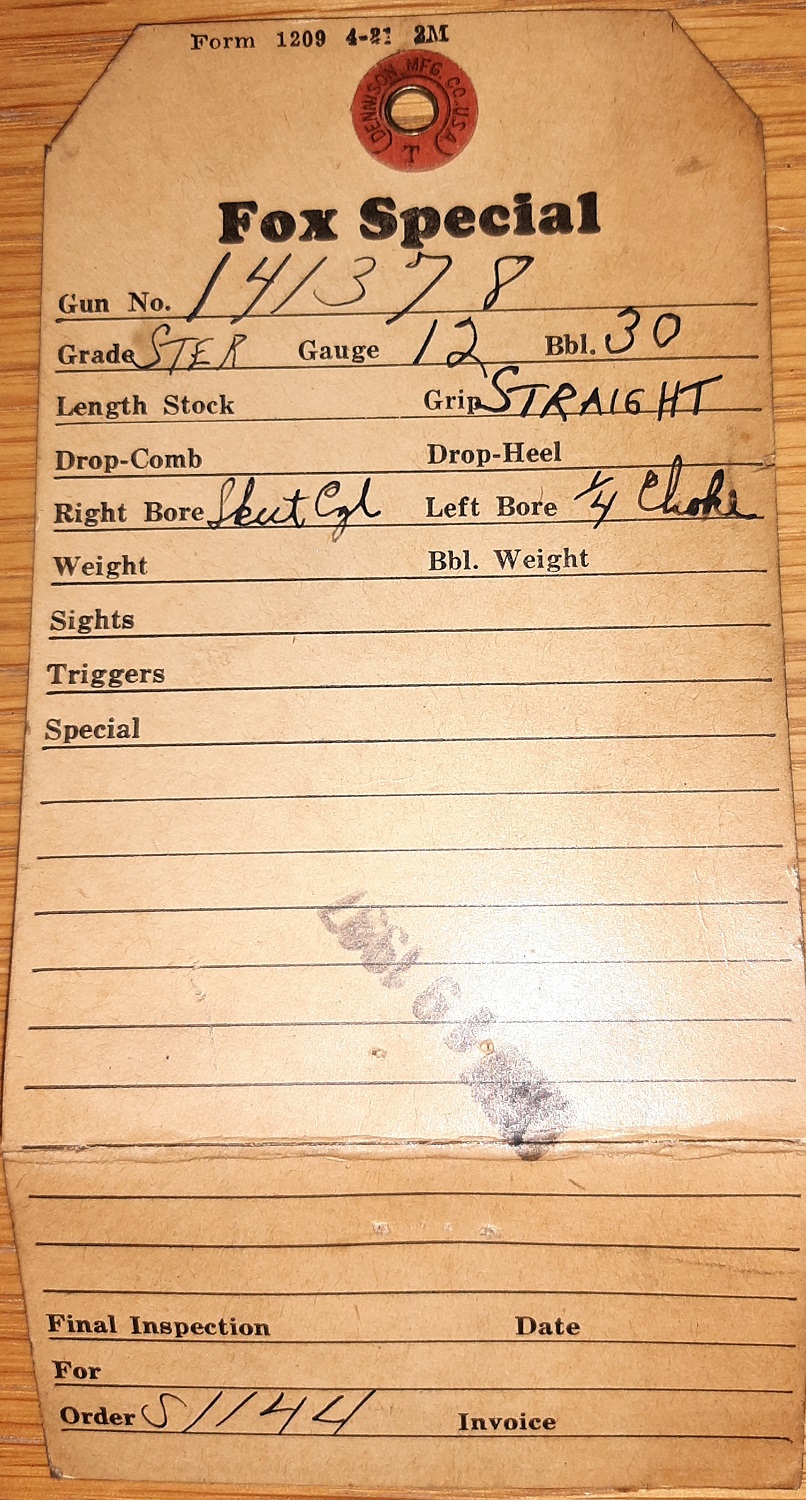 Form 1209 4-21 2M
DENNISON MFG. CO. U.S.A.
T
Fox Special
Gun No. 141378
Grade STER Gauge 12 Bbl. 30
Length Stock Grip STRAIGHT
Drop-Comb Drop-Heel
Right Bore Skeet Cyl Left Bore 1/4 Choke
Weight Bbl. Weight
Sights
Triggers
Special
Final Inspection Date
For
Order S1144 Invoice